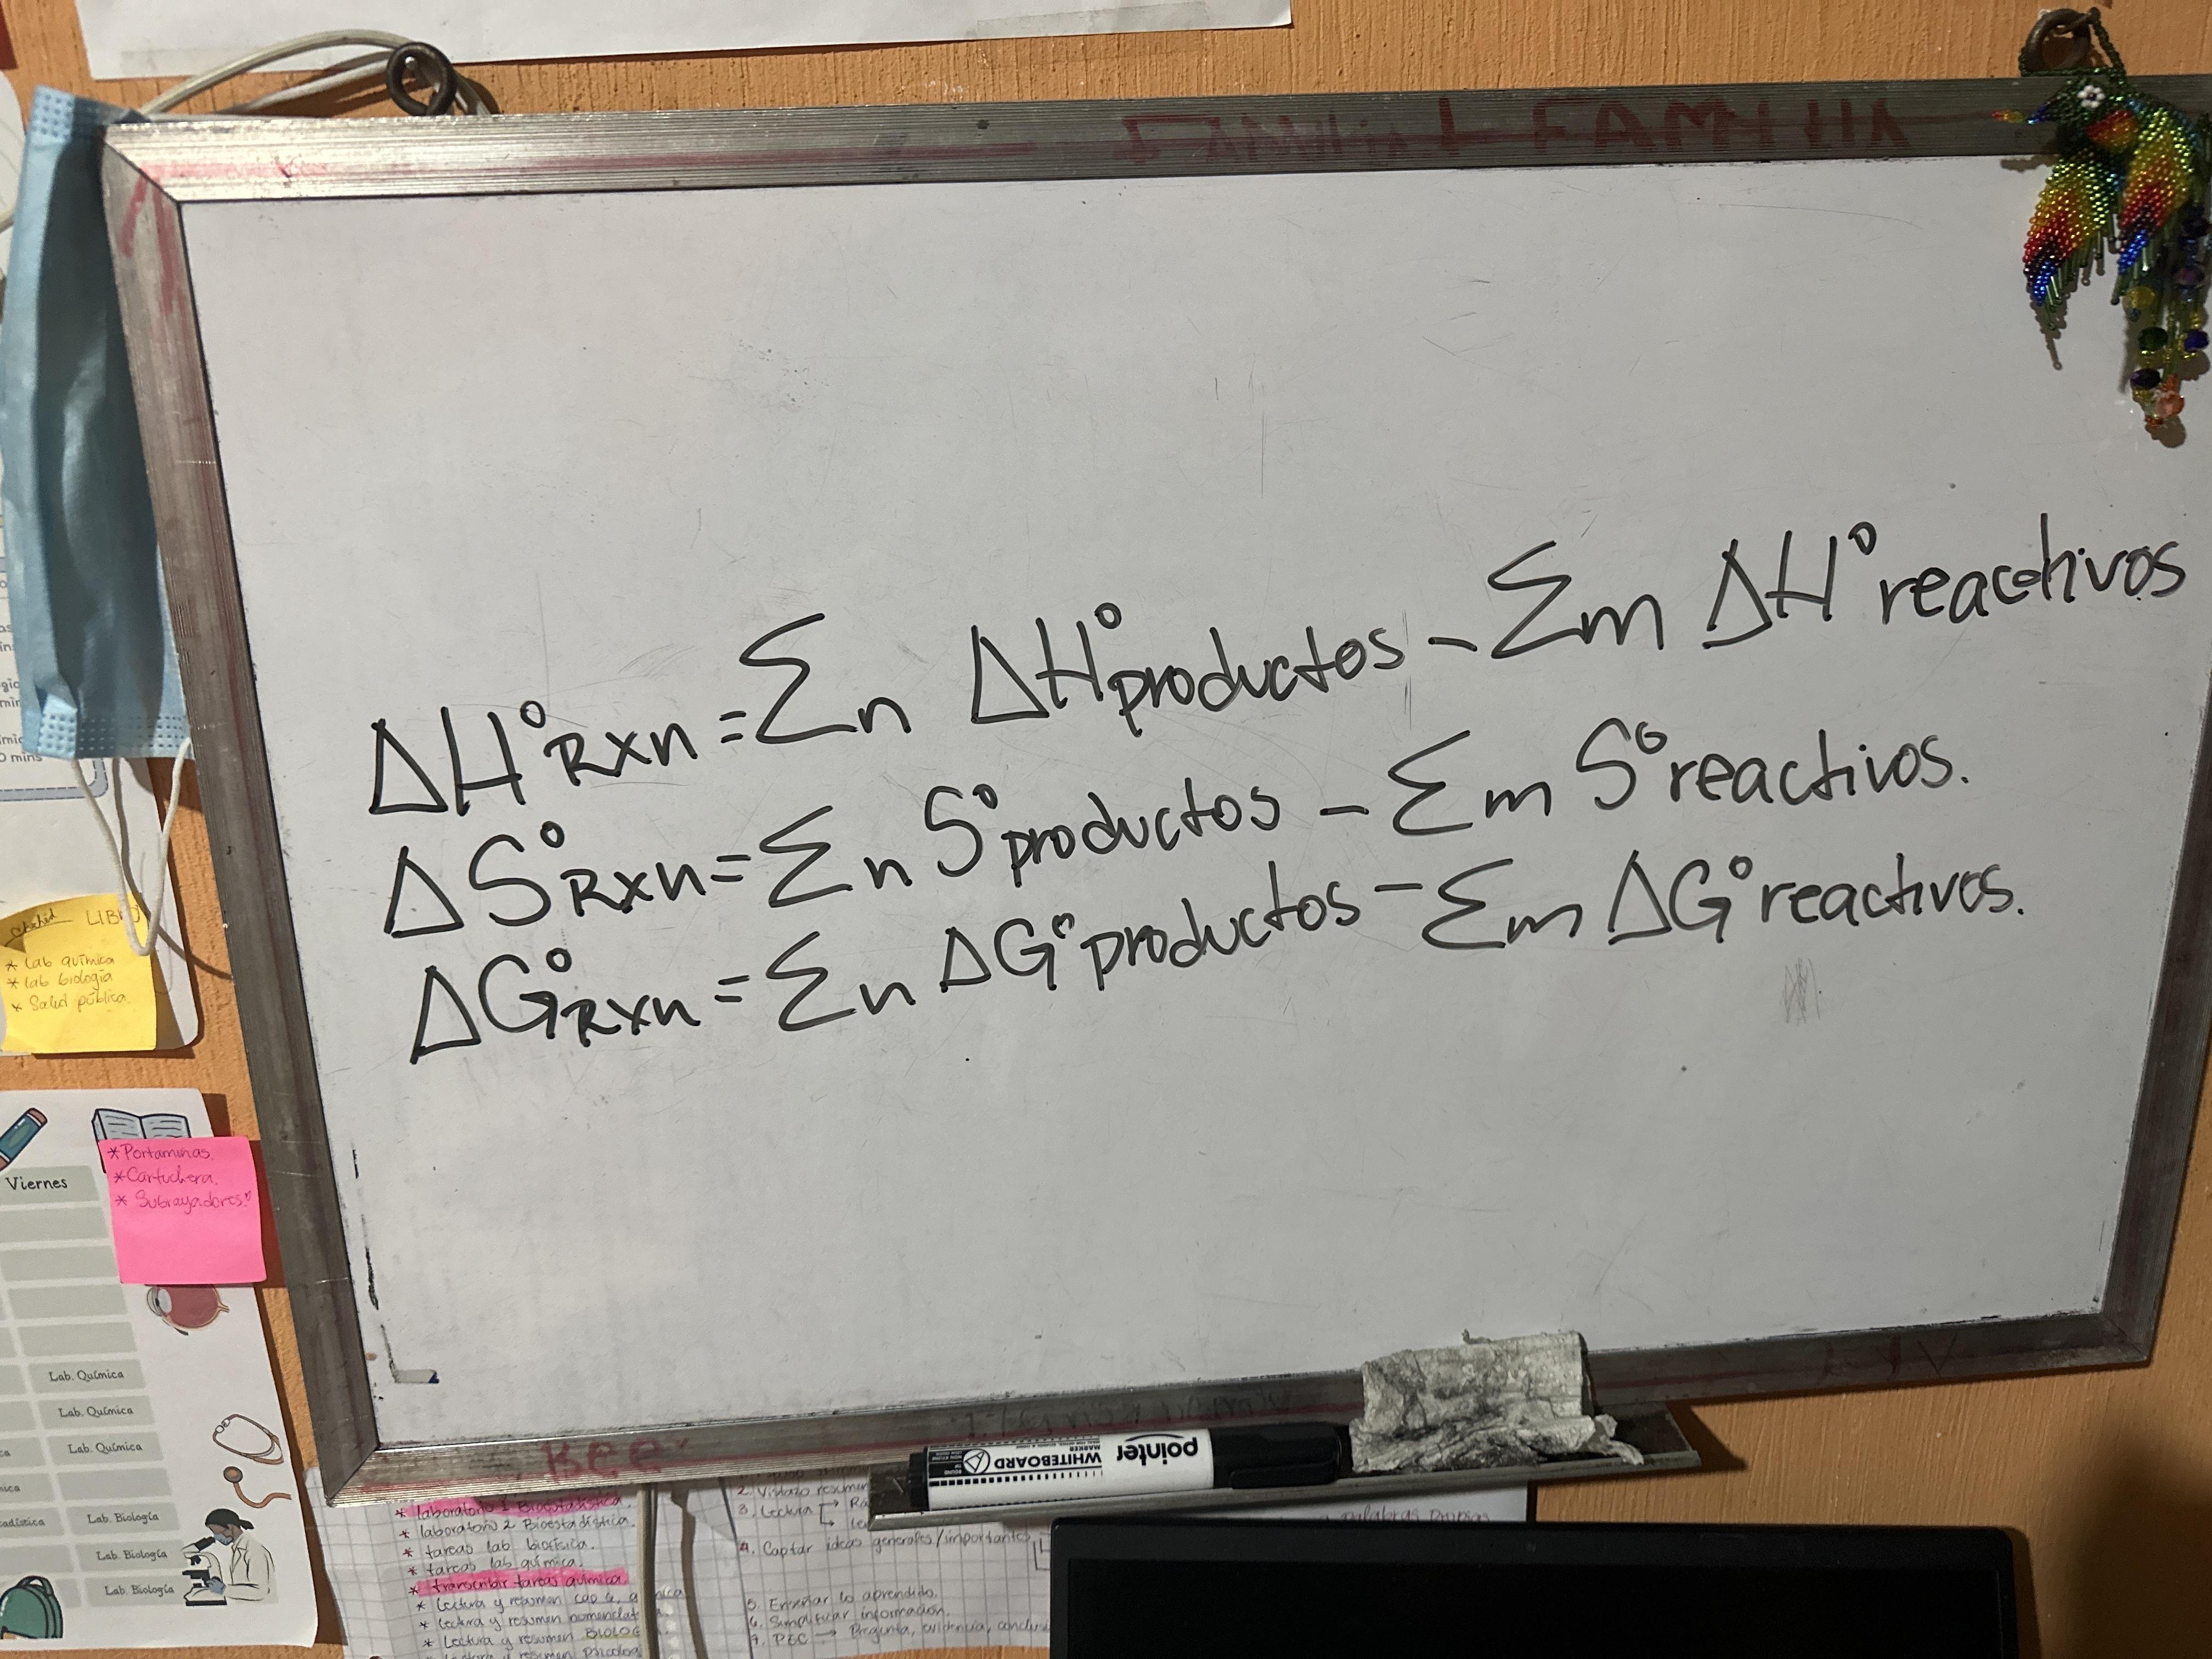 ΔH°Rxn = Σn ΔH°productos - Σm ΔH° reactivos
ΔS°Rxn = Σn S°productos - Σm S° reactivos.
ΔG°Rxn = Σn ΔG° productos - Σm ΔG° reactivos.
FAMILIA
LIBRO
* Lab química
* Lab biología
* Salud pública.
* Portaminas.
* Cartuchera.
* Subrayadores.
Viernes
Lab. Química
Lab. Química
Lab. Química
Lab. Biología
Lab. Biología
Lab. Biología
Bee
pointer
WHITEBOARD
MARKER
* laboratorio 1 Bioestadística.
* laboratorio 2 Bioestadística.
* tareas lab biofísica.
* tareas lab química.
* transcribir tareas química
* Lectura y resumen cap 4,
* Lectura y resumen
* Lectura y resumen
* Lectura y resumen
2. Vistazo
3. Lectura
4. Captar ideas generales/importantes
5. Enseñar lo aprendido.
6. Simplificar información.
7. PEC → Pregunta, evidencia,
palabras propias